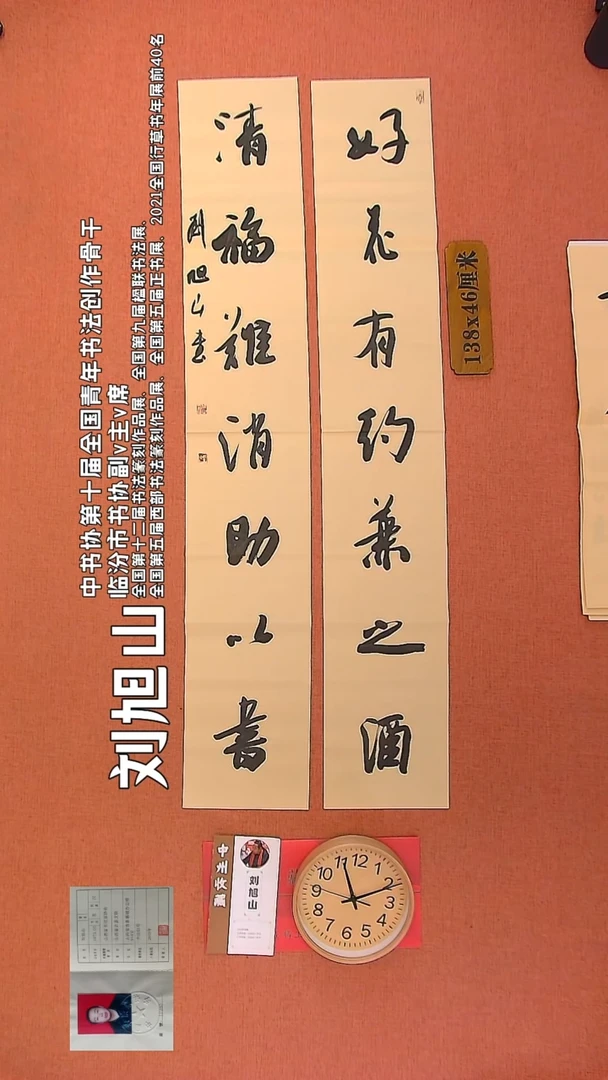 好花有约兼之酒
清福难消助以書
刘旭山書
138x46厘米
中书协第十届全国青年书法创作骨干
临汾市书协副v主v席
全国第十二届书法篆刻作品展、全国第九届楹联书法展、
全国第五届西部书法篆刻作品展、全国第五届正书展、2021全国行草书年展前40名
刘旭山
刘旭山
12
1
2
3
4
5
6
7
8
9
10
11